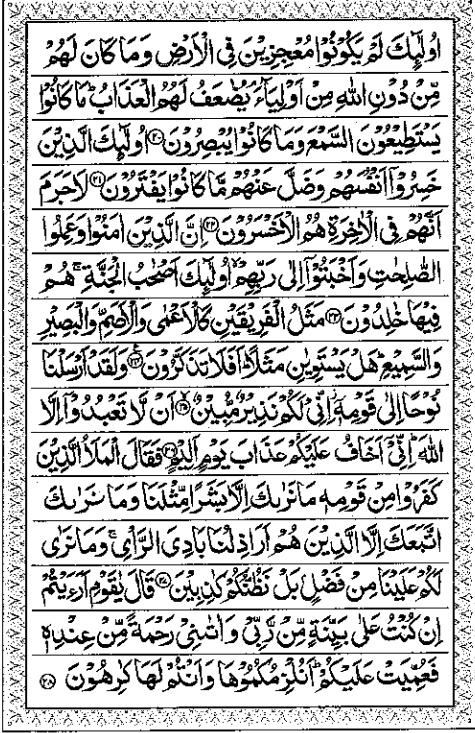 اُولٰٓئِكَ لَمْ يَكُوْنُوْا مُعْجِزِيْنَ فِى الْاَرْضِ وَمَا كَانَ لَهُمْ
مِّنْ دُوْنِ اللّٰهِ مِنْ اَوْلِيَآءَ ۘ يُضٰعَفُ لَهُمُ الْعَذَابُ ؕ مَا كَانُوْا
يَسْتَطِيْعُوْنَ السَّمْعَ وَمَا كَانُوْا يُبْصِرُوْنَ ﴿۲۰﴾ اُولٰٓئِكَ الَّذِيْنَ
خَسِرُوْۤا اَنْفُسَهُمْ وَضَلَّ عَنْهُمْ مَّا كَانُوْا يَفْتَرُوْنَ ﴿۲۱﴾ لَاجَرَمَ
اَنَّهُمْ فِى الْاٰخِرَةِ هُمُ الْاَخْسَرُوْنَ ﴿۲۲﴾ اِنَّ الَّذِيْنَ اٰمَنُوْا وَعَمِلُوا
الصّٰلِحٰتِ وَاَخْبَتُوْۤا اِلٰى رَبِّهِمْ ۙ اُولٰٓئِكَ اَصْحٰبُ الْجَنَّةِ ۚ هُمْ
فِيْهَا خٰلِدُوْنَ ﴿۲۳﴾ مَثَلُ الْفَرِيْقَيْنِ كَالْاَعْمٰى وَالْاَصَمِّ وَالْبَصِيْرِ
وَالسَّمِيْعِ ؕ هَلْ يَسْتَوِيٰنِ مَثَلًا ؕ اَفَلَا تَذَكَّرُوْنَ ﴿۲۴﴾ وَلَقَدْ اَرْسَلْنَا
نُوْحًا اِلٰى قَوْمِهٖۤ اِنِّىْ لَكُمْ نَذِيْرٌ مُّبِيْنٌ ﴿۲۵﴾ اَنْ لَّا تَعْبُدُوْۤا اِلَّا
اللّٰهَ ؕ اِنِّىْۤ اَخَافُ عَلَيْكُمْ عَذَابَ يَوْمٍ اَلِيْمٍ ﴿۲۶﴾ فَقَالَ الْمَلَاُ الَّذِيْنَ
كَفَرُوْا مِنْ قَوْمِهٖ مَا نَرٰىكَ اِلَّا بَشَرًا مِّثْلَنَا وَمَا نَرٰىكَ
اتَّبَعَكَ اِلَّا الَّذِيْنَ هُمْ اَرَاذِلُنَا بَادِىَ الرَّاْىِ ۚ وَمَا نَرٰى
لَكُمْ عَلَيْنَا مِنْ فَضْلٍۢ بَلْ نَظُنُّكُمْ كٰذِبِيْنَ ﴿۲۷﴾ قَالَ يٰقَوْمِ اَرَءَيْتُمْ
اِنْ كُنْتُ عَلٰى بَيِّنَةٍ مِّنْ رَّبِّىْ وَاٰتٰىنِىْ رَحْمَةً مِّنْ عِنْدِهٖ
فَعُمِّيَتْ عَلَيْكُمْ ؕ اَنُلْزِمُكُمُوْهَا وَاَنْتُمْ لَهَا كٰرِهُوْنَ ﴿۲۸﴾